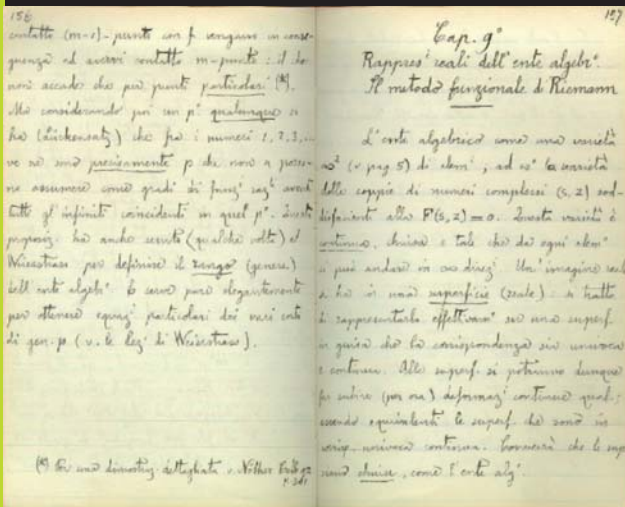 156
contatto (m-1)-punto con f vengano in conse-
guenza ad avervi contatto m-punto: il che
non accade che per punti particolari (*).
Ma considerando poi un p.º qualunque si
ha (Lückensatz) che fra i numeri 1, 2, 3, ...
ve ne sono precisamente p che non si posso-
no assumere come gradi di funz.i raz.li aventi
tutti gl'infiniti coincidenti in quel p.º. Questa
proposiz. ha anche servito (qualche volta) al
Weierstrass per definire il rango (genere)
dell'ente algebr.º e serve pure elegantemente
per ottenere equaz.i particolari dei vari enti
di gen. p (v. le lez.i di Weierstrass).
(*) Per una dimostraz. dettagliata v. Nöther
157
Cap. 9º
Rappres.i reali dell'ente algebr.º
Il metodo funzionale di Riemann
L'ente algebrico come una varietà
∞² (v. pag 5) di elem.i, ad es.º la varietà
delle coppie di numeri complessi (s, z) sod-
disfacenti alla F(s, z) = 0. Questa varietà è
continua, chiusa e tale che da ogni elem.º
si può andare in ∞ direz.i Un'imagine reale
si ha in una superficie (reale): si tratta
di rappresentarlo effettivam.e su una superf.
in guisa che la corrispondenza sia univoca
e continua. Alle superf. si potranno dunque
far subire (per ora) deformaz.i continue qual.:
essendo equivalenti le superf. che sono in
corrisp. univoca continua. Converrà che le sup.
siano chiuse, come l'ente alg.º.